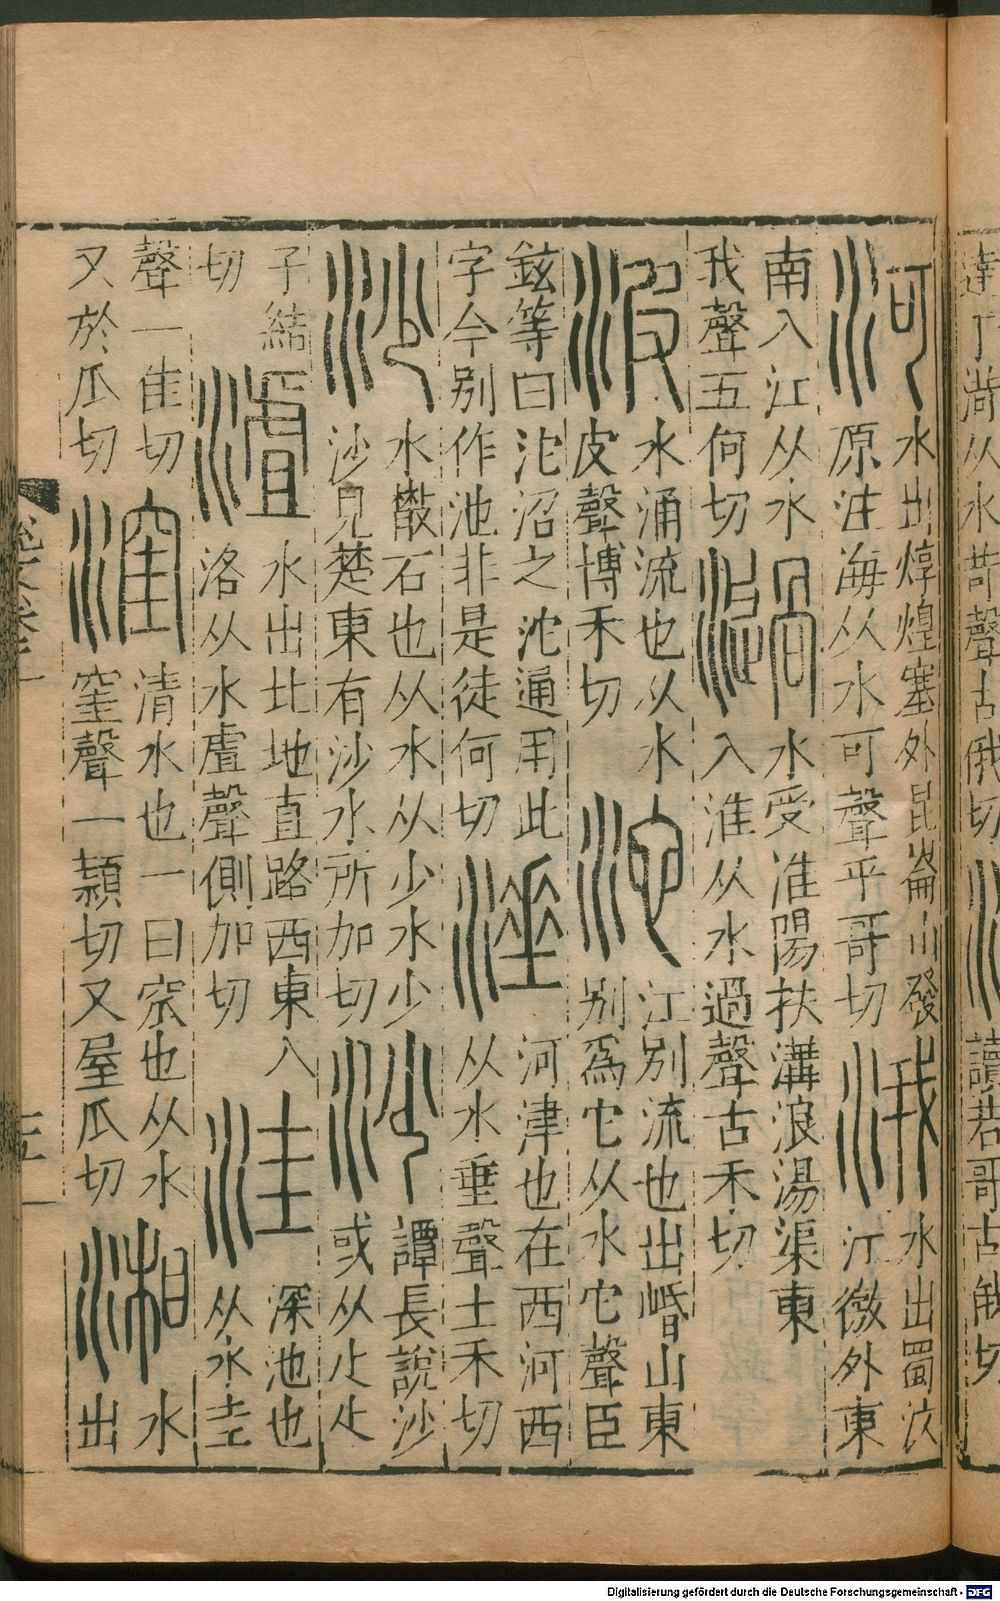 河
水出焞煌塞外昆崙山發
原注海从水可聲乎哥切
涐
水出蜀汶
江徼外東
南入江从水
我聲五何切
濄
水受淮陽扶溝浪湯渠東
入淮从水過聲古禾切
波
水涌流也从水
皮聲博禾切
沱
江別流也出崏山東
別爲它从水它聲臣
鉉等曰沱沼之沱通用此
字今别作池非是徒何切
涶
河津也在西河西
从水垂聲土禾切
沙
水散石也从水从少水少
沙見楚東有沙水所加切
譚長說沙
或从尐尐
子結
切
水出北地直路西東入
洛从水虘聲側加切
洼
深池也
从水圭
聲一佳切
又於瓜切
漥
清水也一曰窊也从水
窐聲一穎切又屋瓜切
湘
水
出
Digitalisierung gefördert durch die Deutsche Forschungsgemeinschaft - DFG